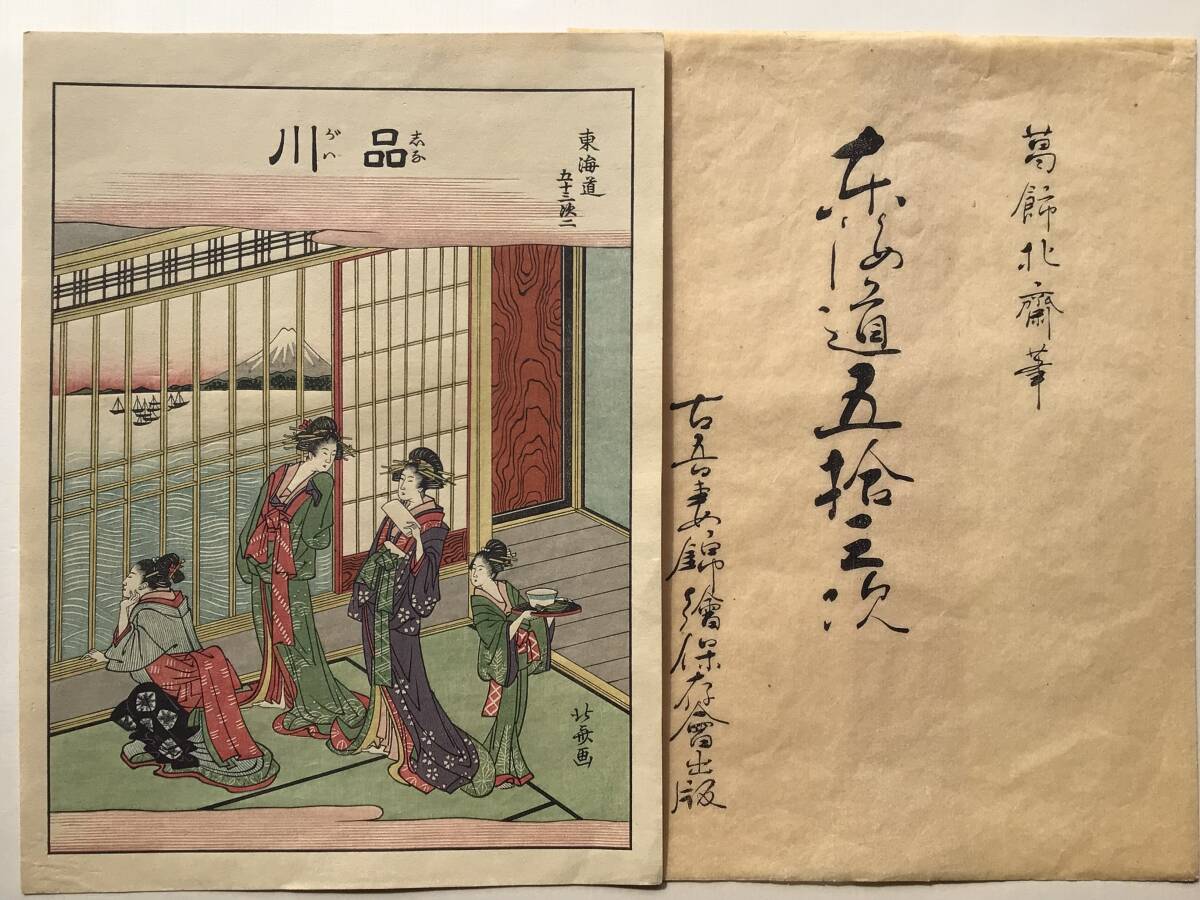 葛飾北齋筆
東海道五拾三次
古吾妻錦繪保存會出版
東海道
五十三次二
品川
しな
がハ
北斎画